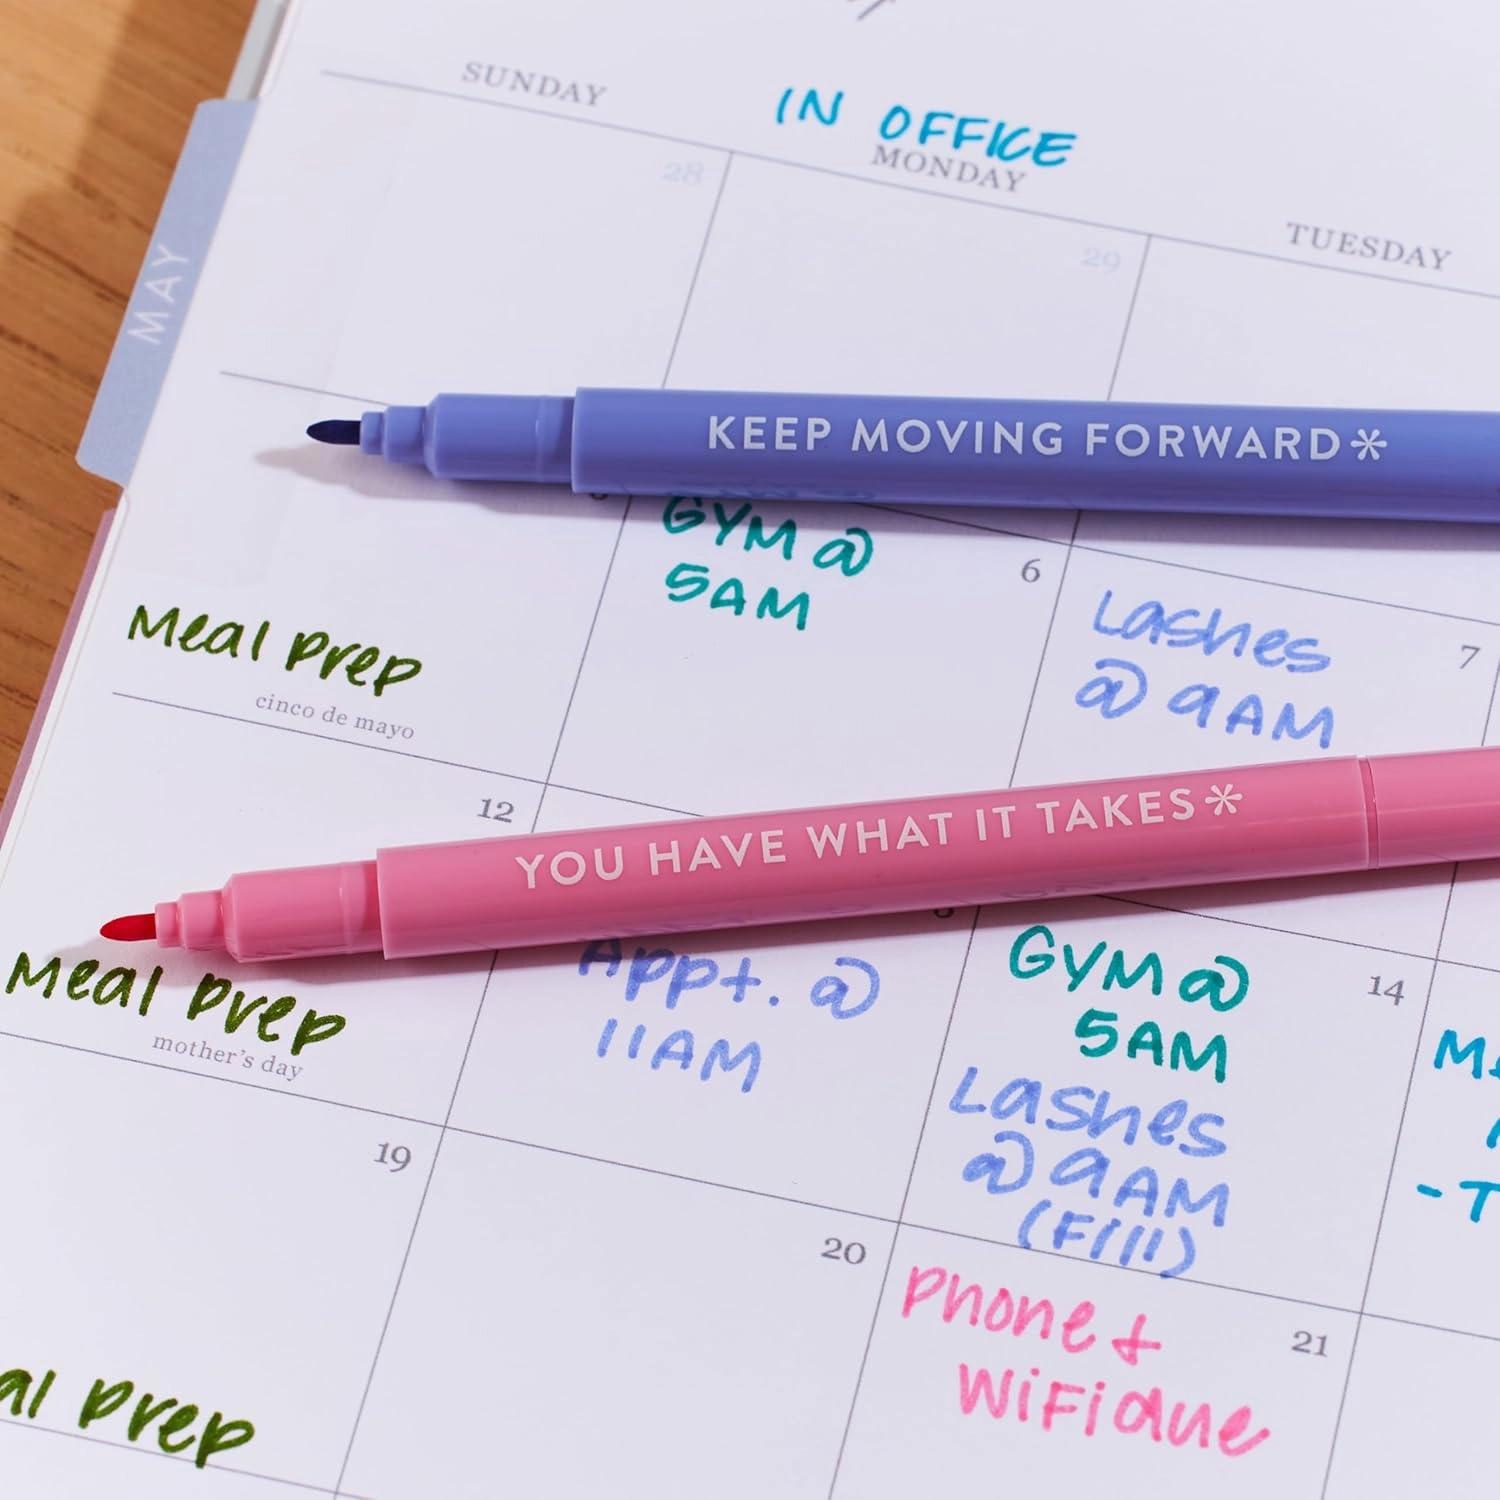 SUNDAY
IN OFFICE
MONDAY
TUESDAY
28
29
MAY
KEEP MOVING FORWARD*
GYM @
5AM
6
Lashes
@ 9AM
7
Meal Prep
cinco de mayo
12
YOU HAVE WHAT IT TAKES*
Meal Prep
mother's day
Appt. @
11AM
GYM @
5AM
14
Lashes
@ 9AM
(Fill)
- T
19
20
Phone +
WiFi due
21
Prep